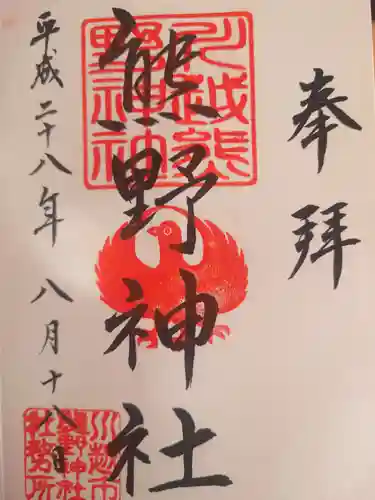 奉拝
熊野神社
川越熊野神社
平成二十八年 八月十八日
川越市熊野神社社務所